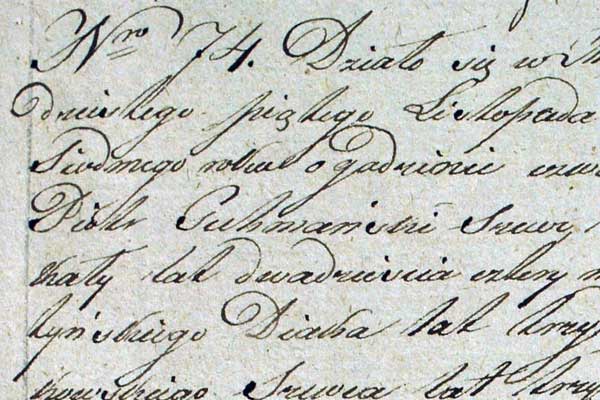 Nro 74. Działo się w M
dwudziestego piątego Listopada
Siodmego roku o godzinie czwa
Piotr Guhmański Szewc
kały lat dwadzieścia cztery
tyńskiego Diaka lat trzy
kowskiego Szewca lat trzy